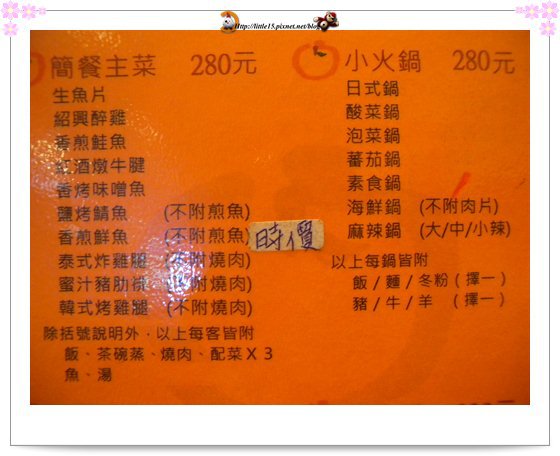 Http://little15.pixnet.net/blog
簡餐主菜 280元
生魚片
紹興醉雞
香煎鮭魚
紅酒燉牛腱
香烤味噌魚
鹽烤鯖魚 (不附煎魚)
香煎鮮魚 (不附煎魚) 時價
泰式炸雞腿 (不附燒肉)
蜜汁豬肋排 (不附燒肉)
韓式烤雞腿 (不附燒肉)
除括號說明外，以上每客皆附
飯、茶碗蒸、燒肉、配菜X3
魚、湯
小火鍋 280元
日式鍋
酸菜鍋
泡菜鍋
蕃茄鍋
素食鍋
海鮮鍋 (不附肉片)
麻辣鍋 (大/中/小辣)
以上每鍋皆附
飯/麵/冬粉(擇一)
豬/牛/羊(擇一)